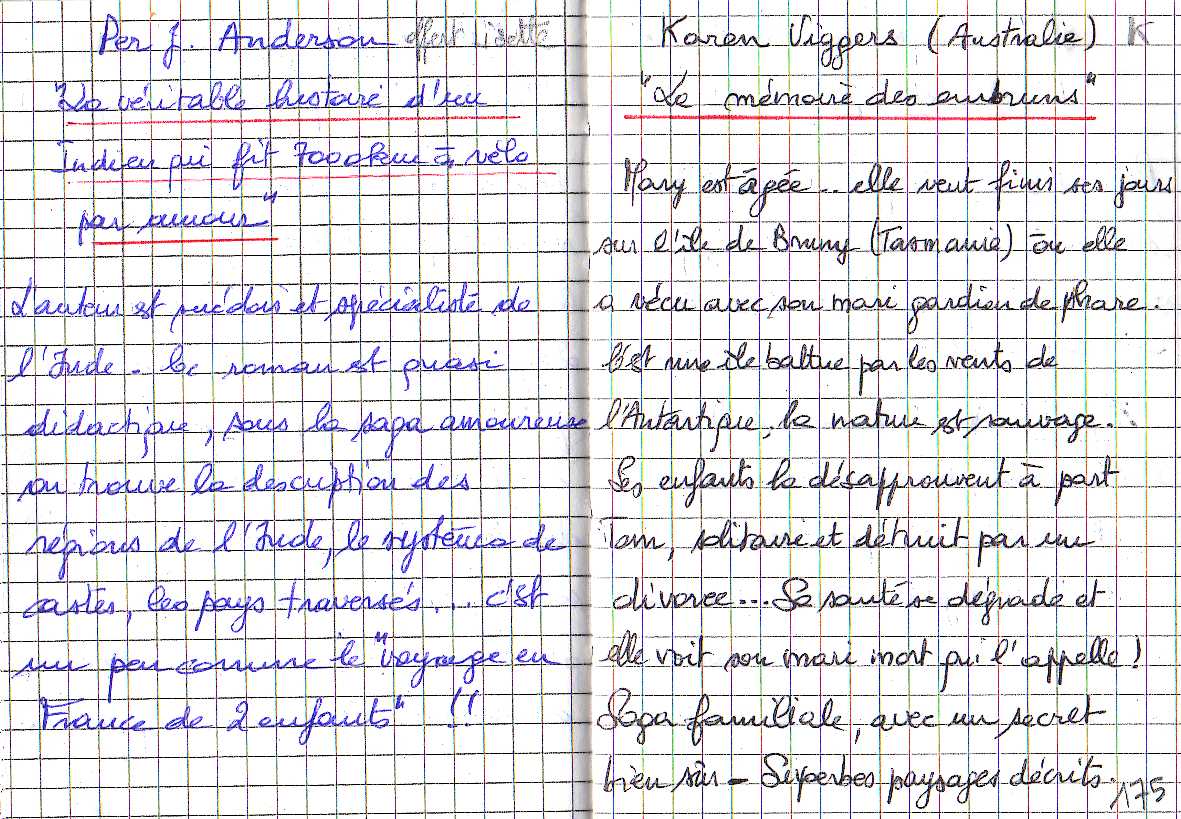 Per J. Anderson offert Lisette
"La véritable histoire d'un
Indien qui fit 7000km à vélo
par amour"
L'auteur est suédois et spécialiste de
l'Inde - Ce roman est quasi
didactique, sous la saga amoureuse
on trouve la description des
régions de l'Inde, le système de
castes, les pays traversés... c'est
un peu comme le "voyage en
France de 2 enfants" !!
Karen Viggers (Australie) K
"La mémoire des embruns"
Mary est âgée.. elle veut finir ses jours
sur l'île de Bruny (Tasmanie) où elle
a vécu avec son mari gardien de phare.
C'est une île battue par les vents de
l'Antartique, la nature est sauvage.
Ses enfants la désapprouvent à part
Tom, solitaire et détruit par un
divorce... Sa santé se dégrade et
elle voit son mari mort qui l'appelle !
Saga familiale, avec un secret
bien sûr - Superbes paysages décrits.
175